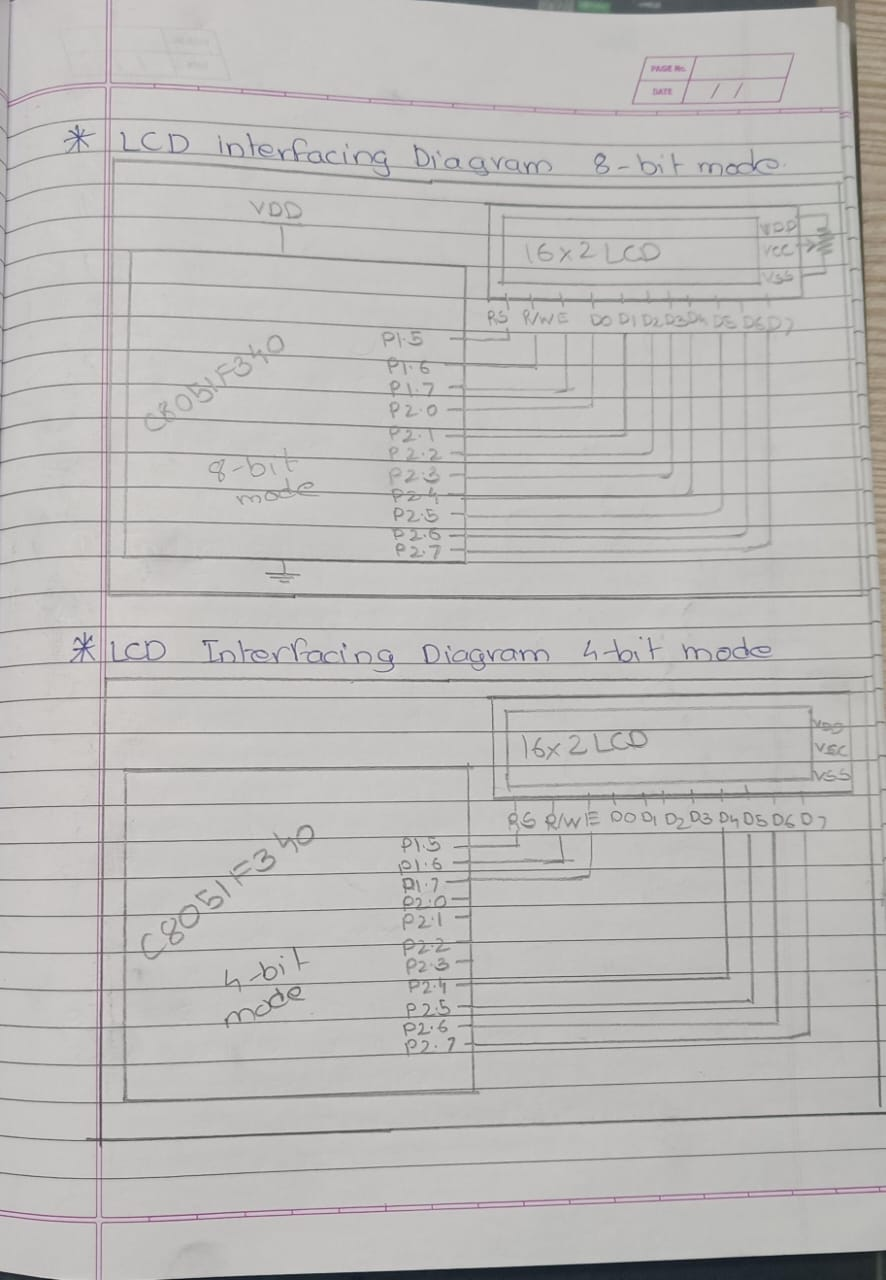 PAGE No.
DATE / /
* LCD interfacing Diagram 8-bit mode.
VDD
16x2 LCD
VDD
VCC
VSS
RS R/W E D0 D1 D2 D3 D4 D5 D6 D7
C8051F340
8-bit
mode
P1.5
P1.6
P1.7
P2.0
P2.1
P2.2
P2.3
P2.4
P2.5
P2.6
P2.7
* LCD Interfacing Diagram 4-bit mode
16x2 LCD
VDD
VEC
VSS
RS R/W E D0 D1 D2 D3 D4 D5 D6 D7
C8051F340
4-bit
mode
P1.5
P1.6
P1.7
P2.0
P2.1
P2.2
P2.3
P2.4
P2.5
P2.6
P2.7